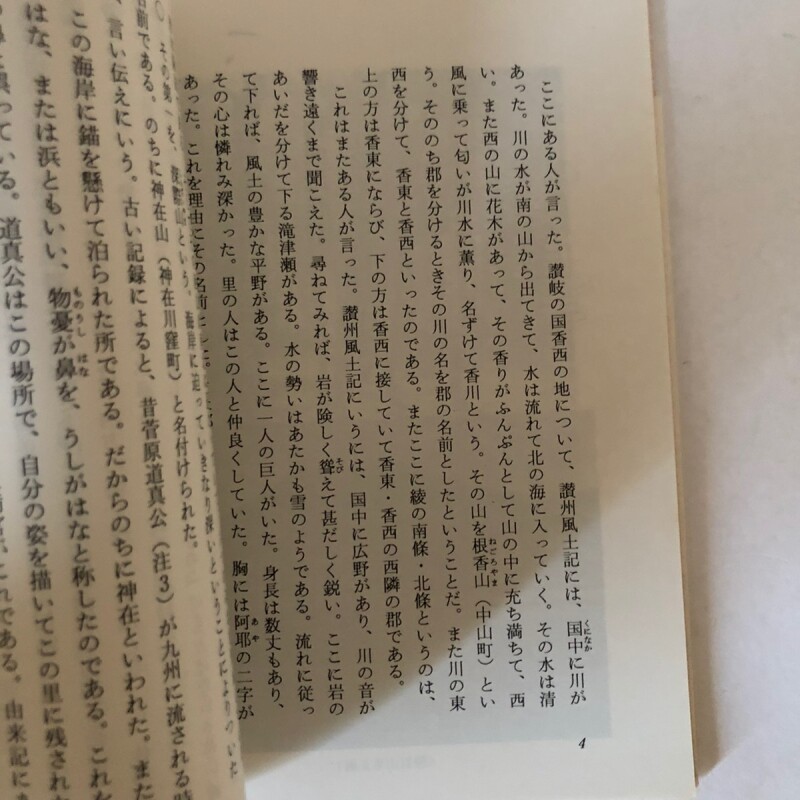 ここにある人が言った。讃岐の国香西の地について、讃州風土記には、国中に川が
くになか
あった。川の水が南の山から出てきて、水は流れて北の海に入っていく。その水は清
い。また西の山に花木があって、その香りがふんぷんとして山の中に充ち満ちて、西
風に乗って匂いが川水に薫り、名ずけて香川という。その山を根香山（中山町）とい
ねごろやま
う。そののち郡を分けるときその川の名を郡の名前としたということだ。また川の東
西を分けて、香東と香西といったのである。またここに綾の南條・北條というのは、
上の方は香東にならび、下の方は香西に接していて香東・香西の西隣の郡である。
これはまたある人が言った。讃州風土記にいうには、国中に広野があり、川の音が
響き遠くまで聞こえた。尋ねてみれば、岩が険しく聳えて甚だしく鋭い。ここに岩の
そび
あいだを分けて下る滝津瀬がある。水の勢いはあたかも雪のようである。流れに従っ
て下れば、風土の豊かな平野がある。ここに一人の巨人がいた。身長は数丈もあり、
その心は憐れみ深かった。里の人はこの人と仲良くしていた。胸には阿耶の二字が
あや
あった。これを理由にその名前
4
である。のちに神在山（神在川窪町）と名付けられた。
言い伝えにいう。古い記録によると、昔菅原道真公（注3）が九州に流される時
この海岸に錨を懸けて泊られた所である。だからのちに神在といわれた。また
はな、または浜ともいい、物憂が鼻を、うしがはなと称したのである。これを
ものうし はな
っている。道真公はこの場所で、自分の姿を描いてこの里に残された
がこれである。由来記に